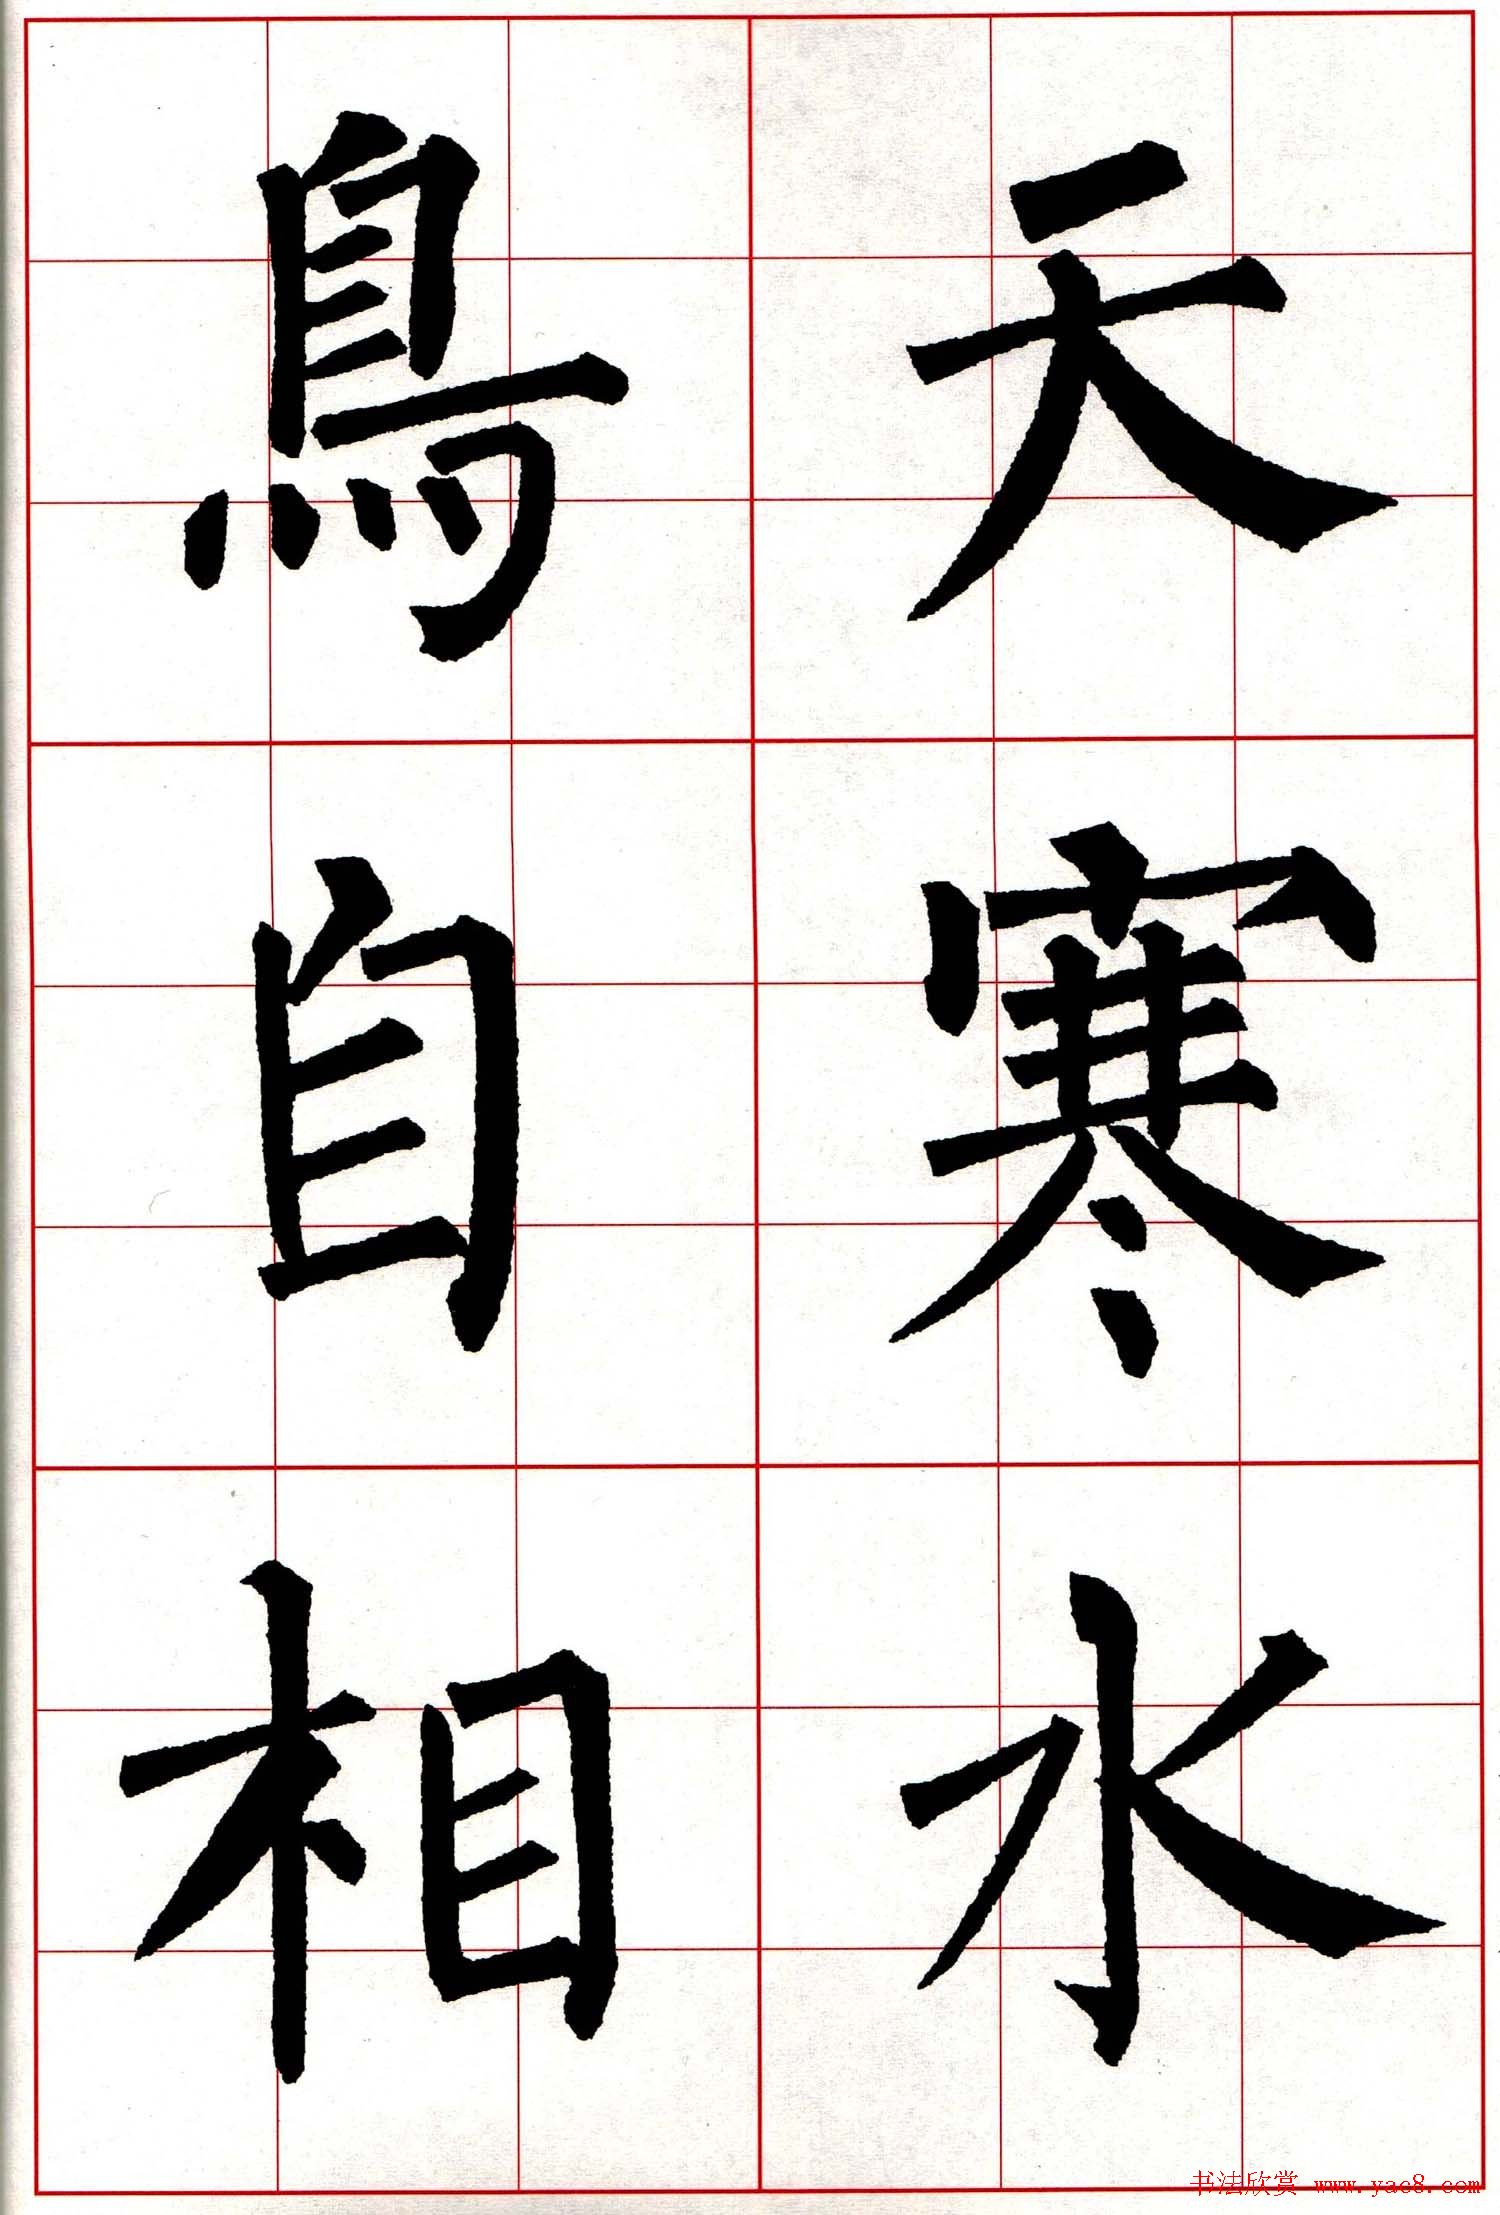 天寒水
鳥自相
书法欣赏 www.yac8.com